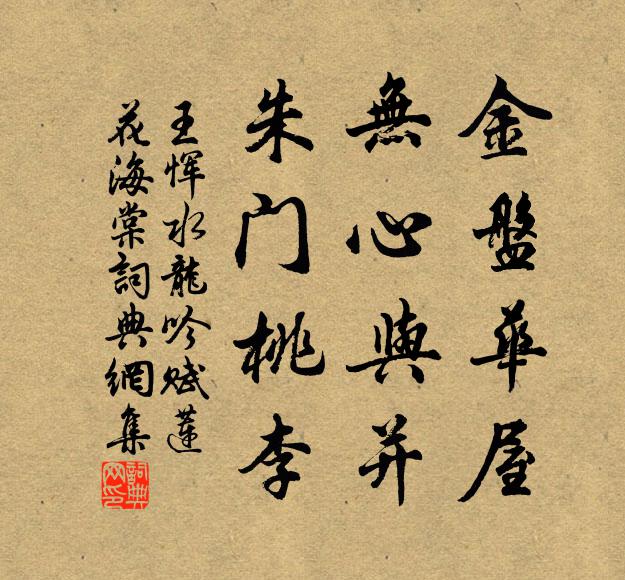 金盤華屋
無心與并
朱门桃李
王恽水龍吟赋蓮
花海棠詞典網集
詞典网印